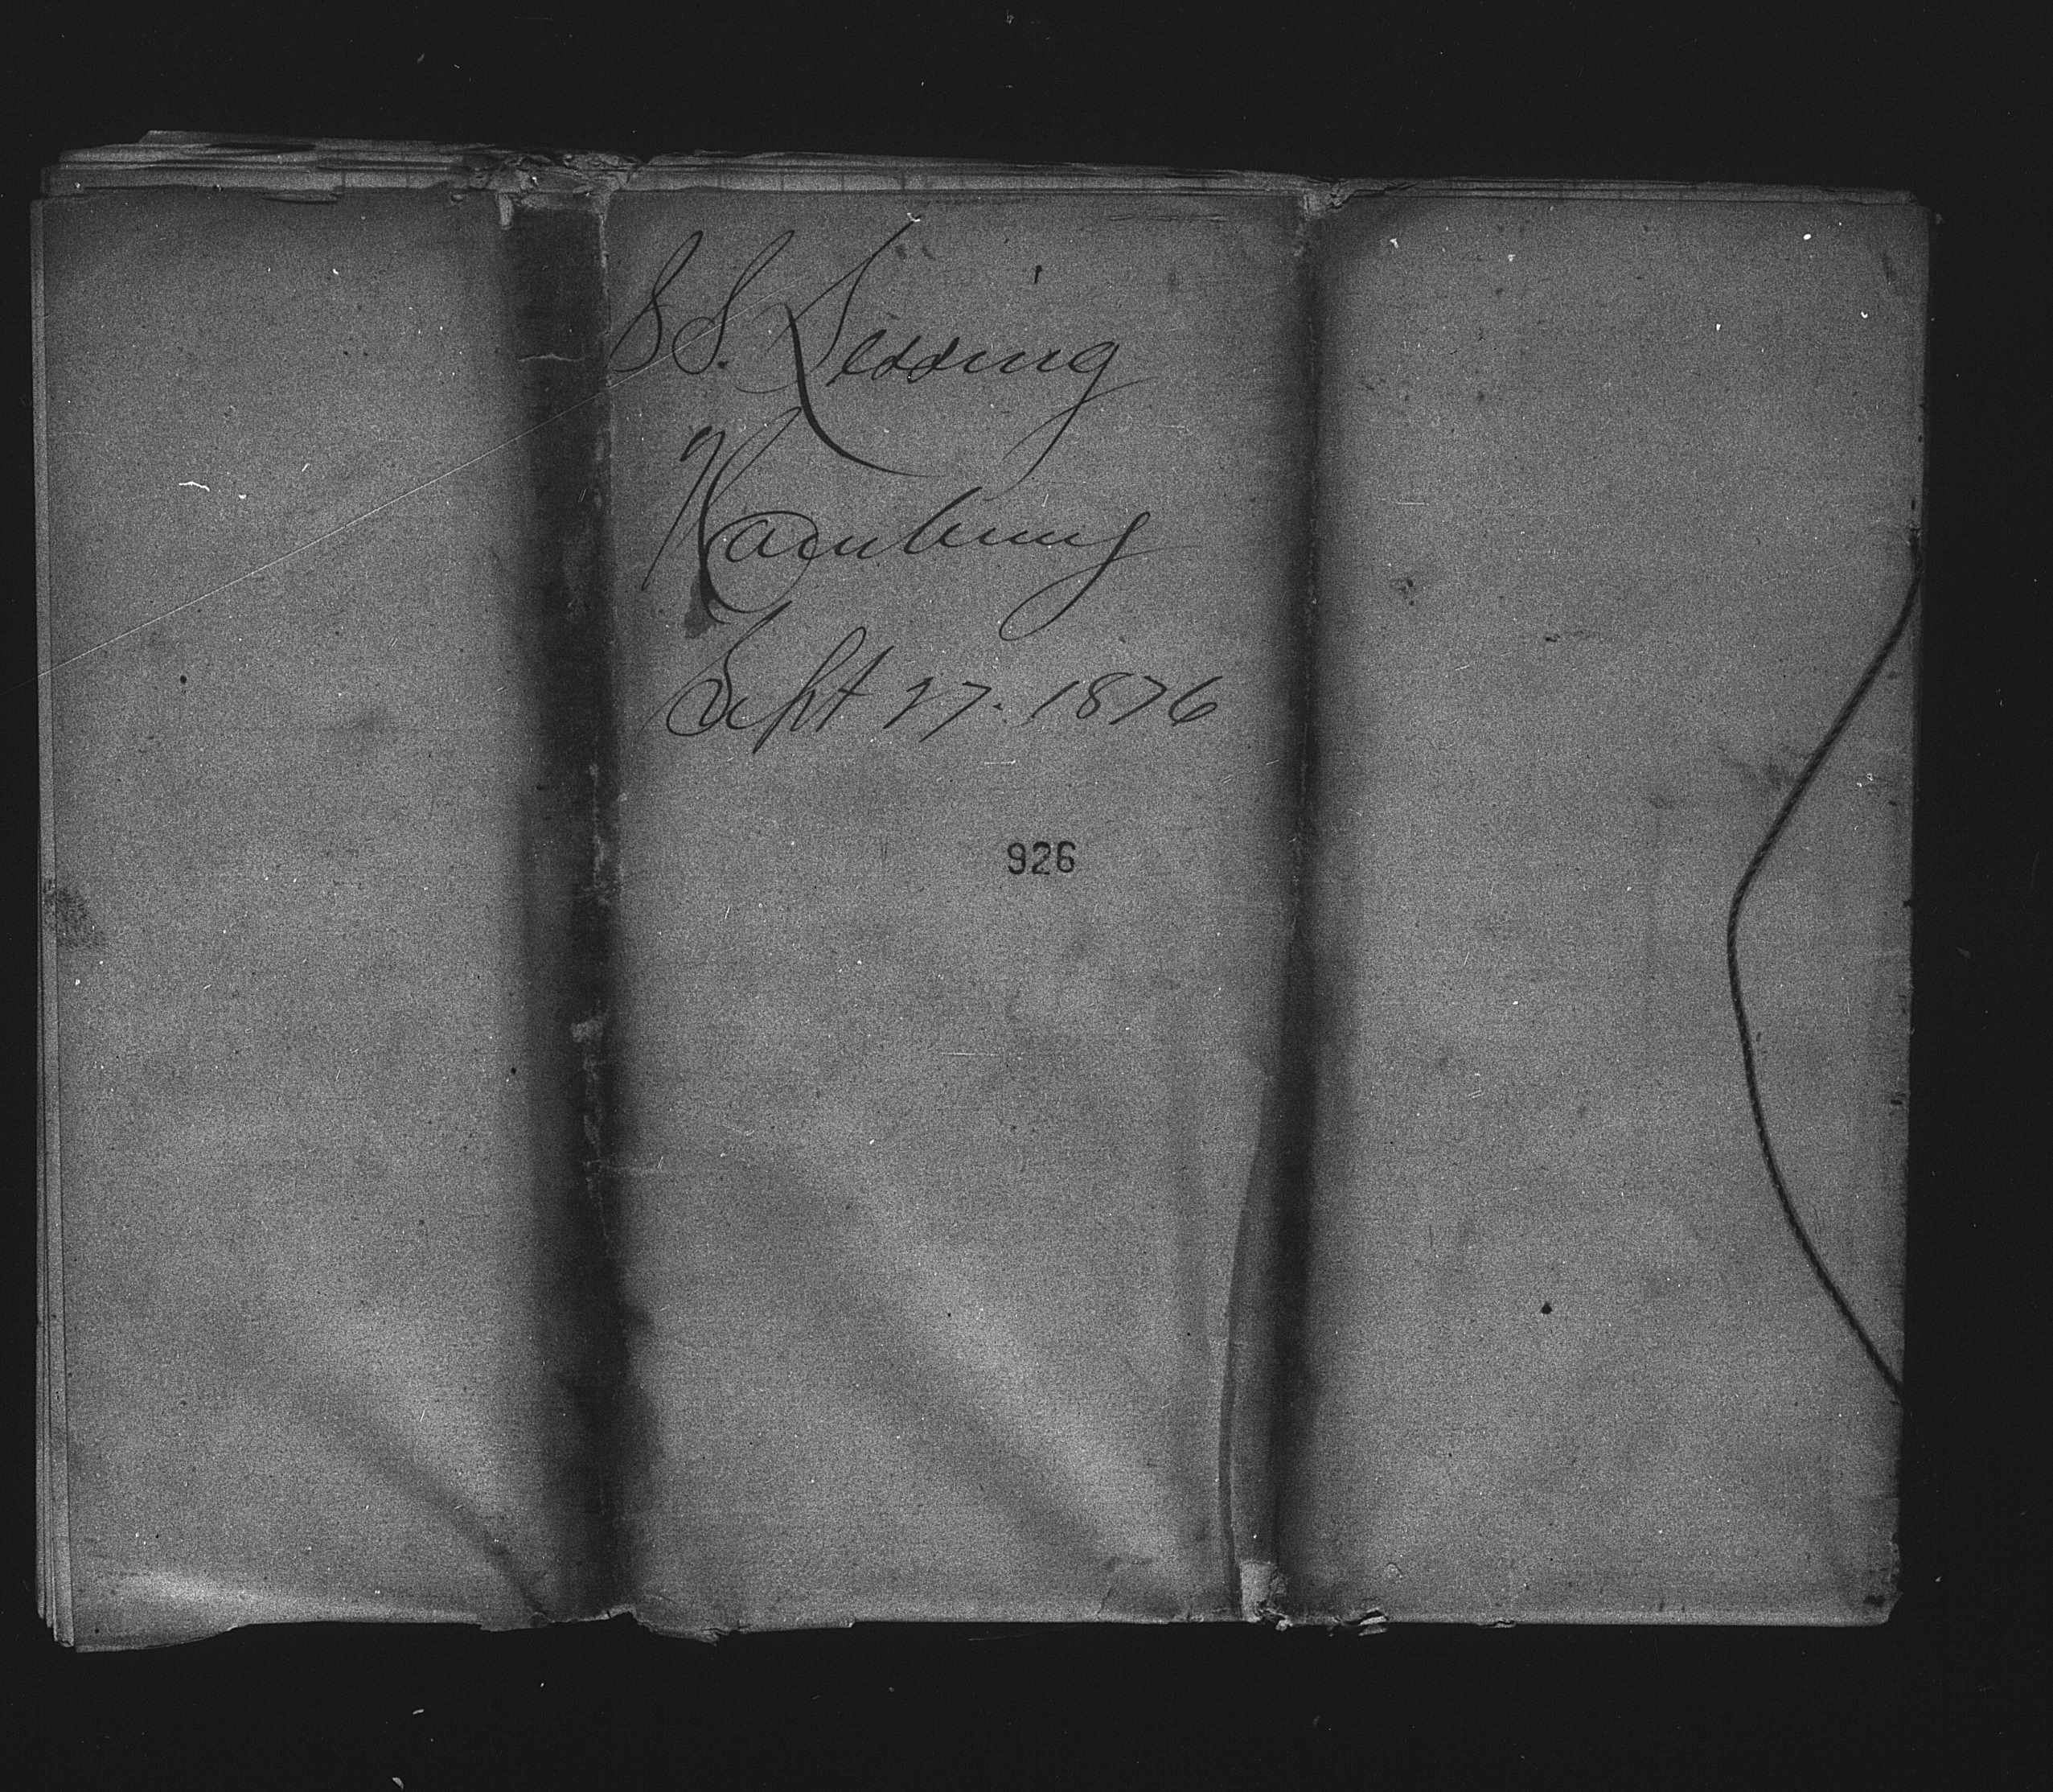 S.S. Lessing
Hamburg
Sept 27. 1876
926